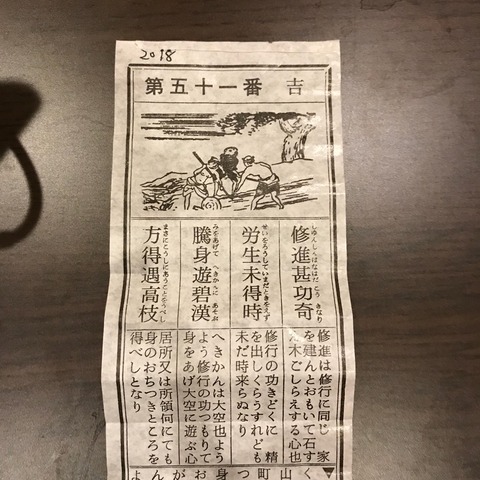 2018
第五十一番 吉
修進甚功奇
しゆんしんはなはだ こう きなり
労生未得時
せいをろうしていまだときをえず
騰身遊碧漢
みをあげて へきかんに あそぶ
方得遇高枝
まさにこうしにあうことをうべし
修進は修行に同じ 家
を建んとおもいて石す
え木ごしらえする心也
修行の功きどくに 精
を出しくらうすれども
未だ時来らぬなり
へきかんは大空也 よう
よう修行の功つもりて
身をあげ大空に遊ぶ心
居所又は所領何にても
身のおちつきところを
得べしとなり